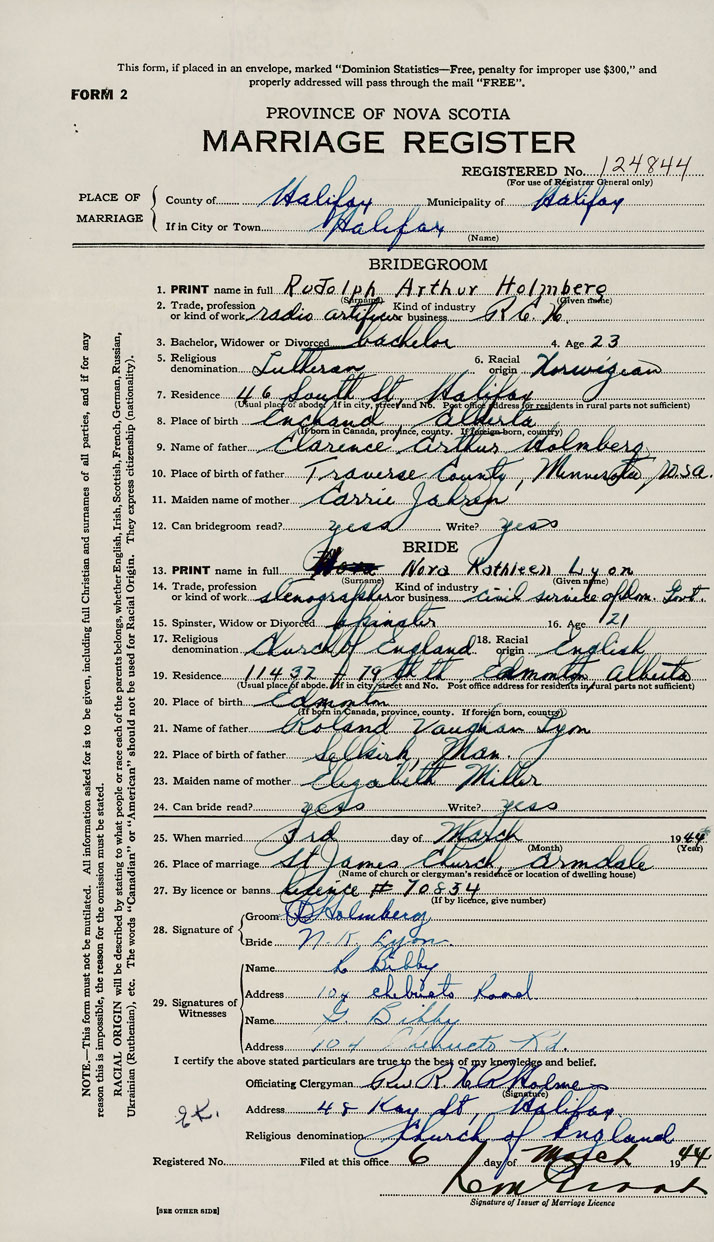 This form, if placed in an envelope, marked "Dominion Statistics—Free, penalty for improper use $300," and
properly addressed will pass through the mail "FREE".
FORM 2
PROVINCE OF NOVA SCOTIA
MARRIAGE REGISTER
REGISTERED No. 124844
(For use of Registrar General only)
PLACE OF MARRIAGE
County of Halifax Municipality of Halifax
If in City or Town Halifax
(Name)
BRIDEGROOM
1. PRINT name in full Rudolph Arthur Holmberg
(Surname) (Given name)
2. Trade, profession or kind of work radio artificer Kind of industry or business R.C.N.
3. Bachelor, Widower or Divorced bachelor 4. Age 23
5. Religious denomination Lutheran 6. Racial origin Norwigean
7. Residence 46 South St, Halifax
(Usual place of abode. If in city, street and No. Post office address for residents in rural parts not sufficient)
8. Place of birth Enchand Alberta
(If born in Canada, province, county. If foreign born, country)
9. Name of father Clarence Arthur Holmberg
10. Place of birth of father Traverse County, Minnesota, U.S.A.
11. Maiden name of mother Carrie Jahren
12. Can bridegroom read? yess Write? yess
BRIDE
13. PRINT name in full Nora Kathleen Lyon
(Surname) (Given name)
14. Trade, profession or kind of work stenographer Kind of industry or business civil service Dom. Govt.
15. Spinster, Widow or Divorced spinster 16. Age 21
17. Religious denomination Church of England 18. Racial origin English
19. Residence 11437 - 79 th, Edmonton Alberta
(Usual place of abode. If in city, street and No. Post office address for residents in rural parts not sufficient)
20. Place of birth Edmonton
(If born in Canada, province, county. If foreign born, country)
21. Name of father Roland Vaughan Lyon
22. Place of birth of father Selkirk, Man.
23. Maiden name of mother Elizabeth Miller
24. Can bride read? yess Write? yess
25. When married 3rd day of March 1944
(Month) (Year)
26. Place of marriage St James Church, Armdale
(Name of church or clergyman's residence or location of dwelling house)
27. By licence or banns licence # 70834
(If by licence, give number)
28. Signature of
Groom R Holmberg
Bride N. K. Lyon.
29. Signatures of Witnesses
Name L Bibby
Address 104 Chebucto Road
Name G Bibby
Address 104 Chebucto Rd.
I certify the above stated particulars are true to the best of my knowledge and belief.
Officiating Clergyman Rev. R. Holmes
(Signature)
Address 48 Kay St, Halifax
Religious denomination Church of England
Registered No. Filed at this office 6 day of March 1944
Signature of Issuer of Marriage Licence
[SEE OTHER SIDE]
E.K.
NOTE.—This form must not be mutilated. All information asked for is to be given, including full Christian and surnames of all parties, and if for any
reason this is impossible, the reason for the omission must be stated.
RACIAL ORIGIN will be described by stating to what people or race each of the parents belongs, whether English, Irish, Scottish, French, German, Russian,
Ukrainian (Ruthenian), etc. The words "Canadian" or "American" should not be used for Racial Origin. They express citizenship (nationality).